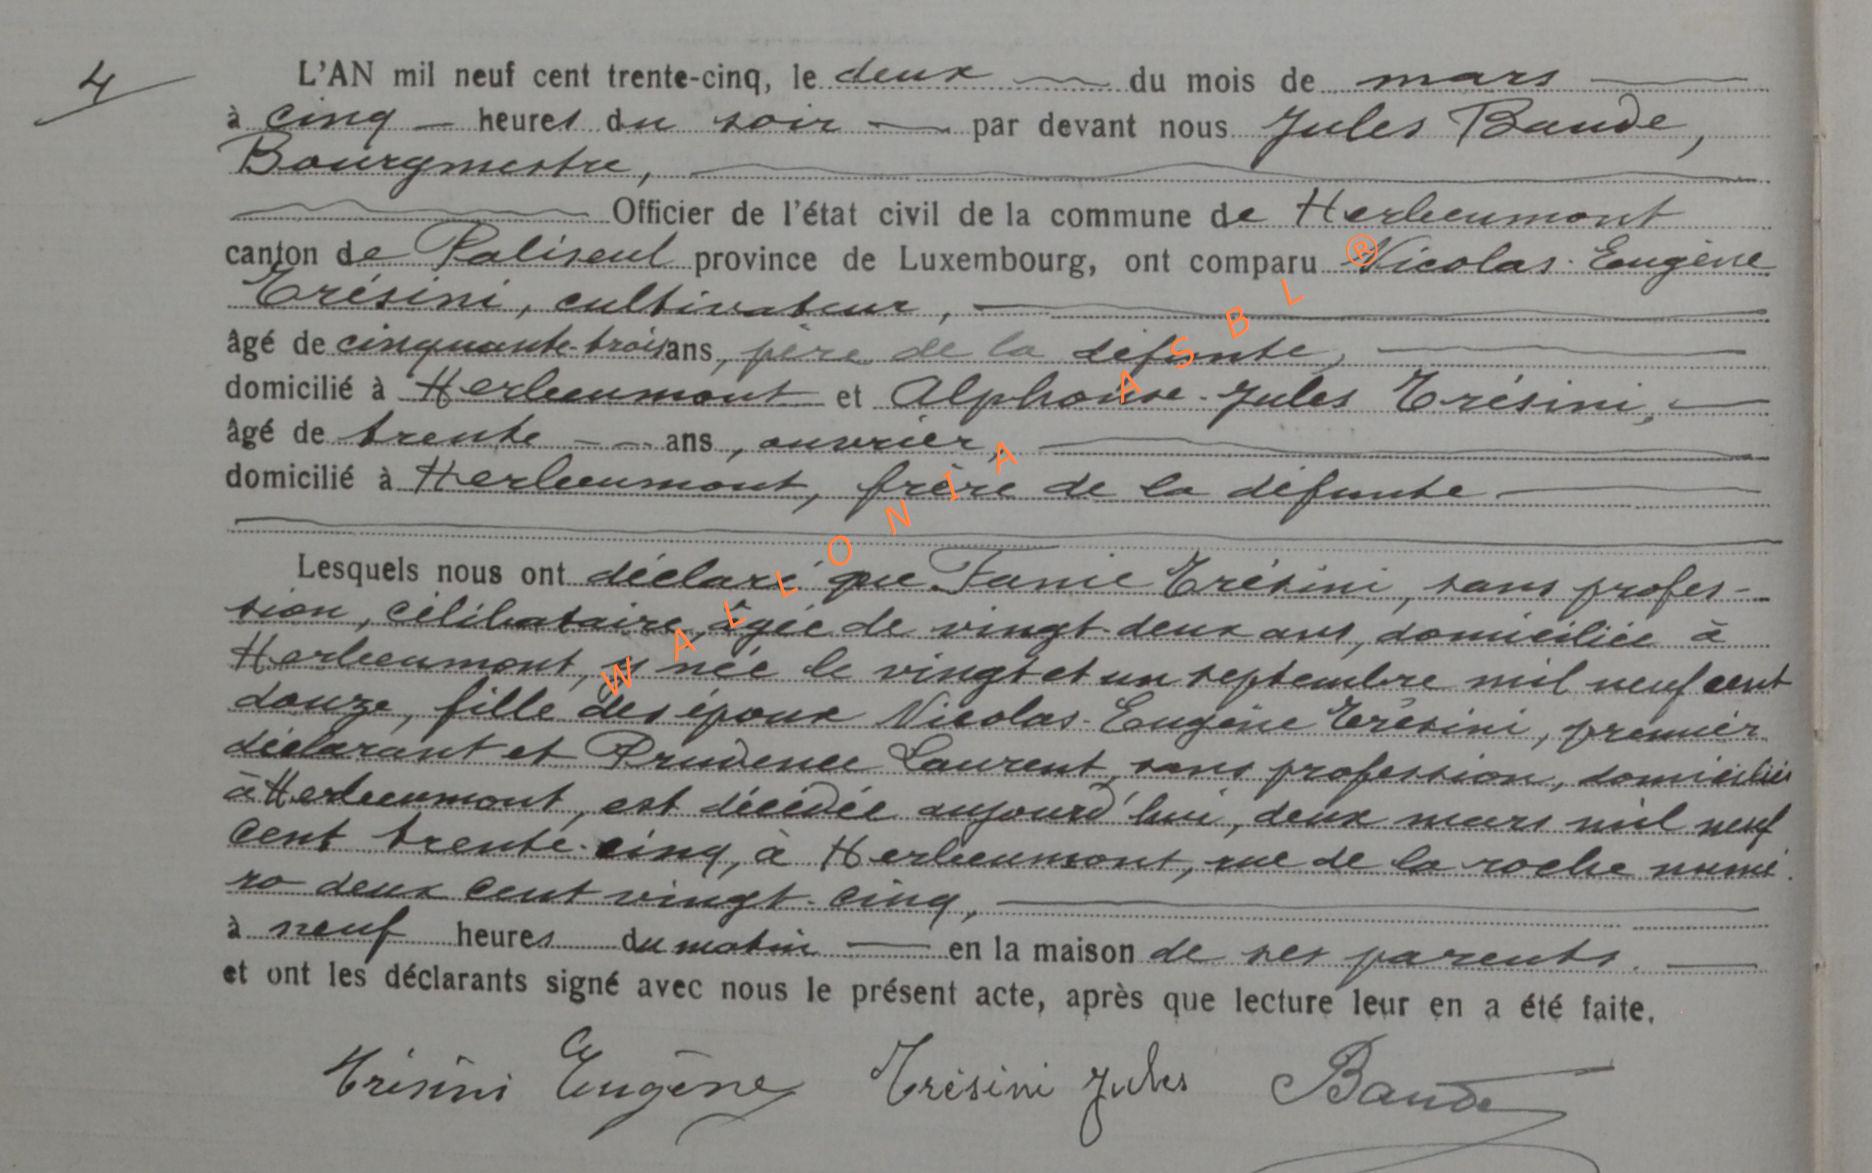 4
L'AN mil neuf cent trente-cinq, le deux du mois de mars
à cinq heures du soir par devant nous Jules Baude,
Bourgmestre,
Officier de l'état civil de la commune de Herbeumont
canton de Paliseul province de Luxembourg, ont comparu Nicolas-Eugène
Trésini, cultivateur,
âgé de cinquante-trois ans, père de la défunte,
domicilié à Herbeumont et Alphonse-Jules Trésini,
âgé de trente ans, ouvrier,
domicilié à Herbeumont, frère de la défunte
Lesquels nous ont déclaré que Fanie Trésini, sans profes-
sion, célibataire, âgée de vingt-deux ans, domiciliée à
Herbeumont, y née le vingt et un septembre mil neuf cent
douze, fille des époux Nicolas-Eugène Trésini, premier
déclarant et Prudence Laurent, sans profession, domiciliés
à Herbeumont, est décédée aujourd'hui, deux mars mil neuf
cent trente-cinq, à Herbeumont, rue de la roche numé-
ro deux cent vingt-cinq,
à neuf heures du matin en la maison de ses parents.
et ont les déclarants signé avec nous le présent acte, après que lecture leur en a été faite.
Trésini Eugène Trésini Jules Baude
WALLONIA ASBL ®